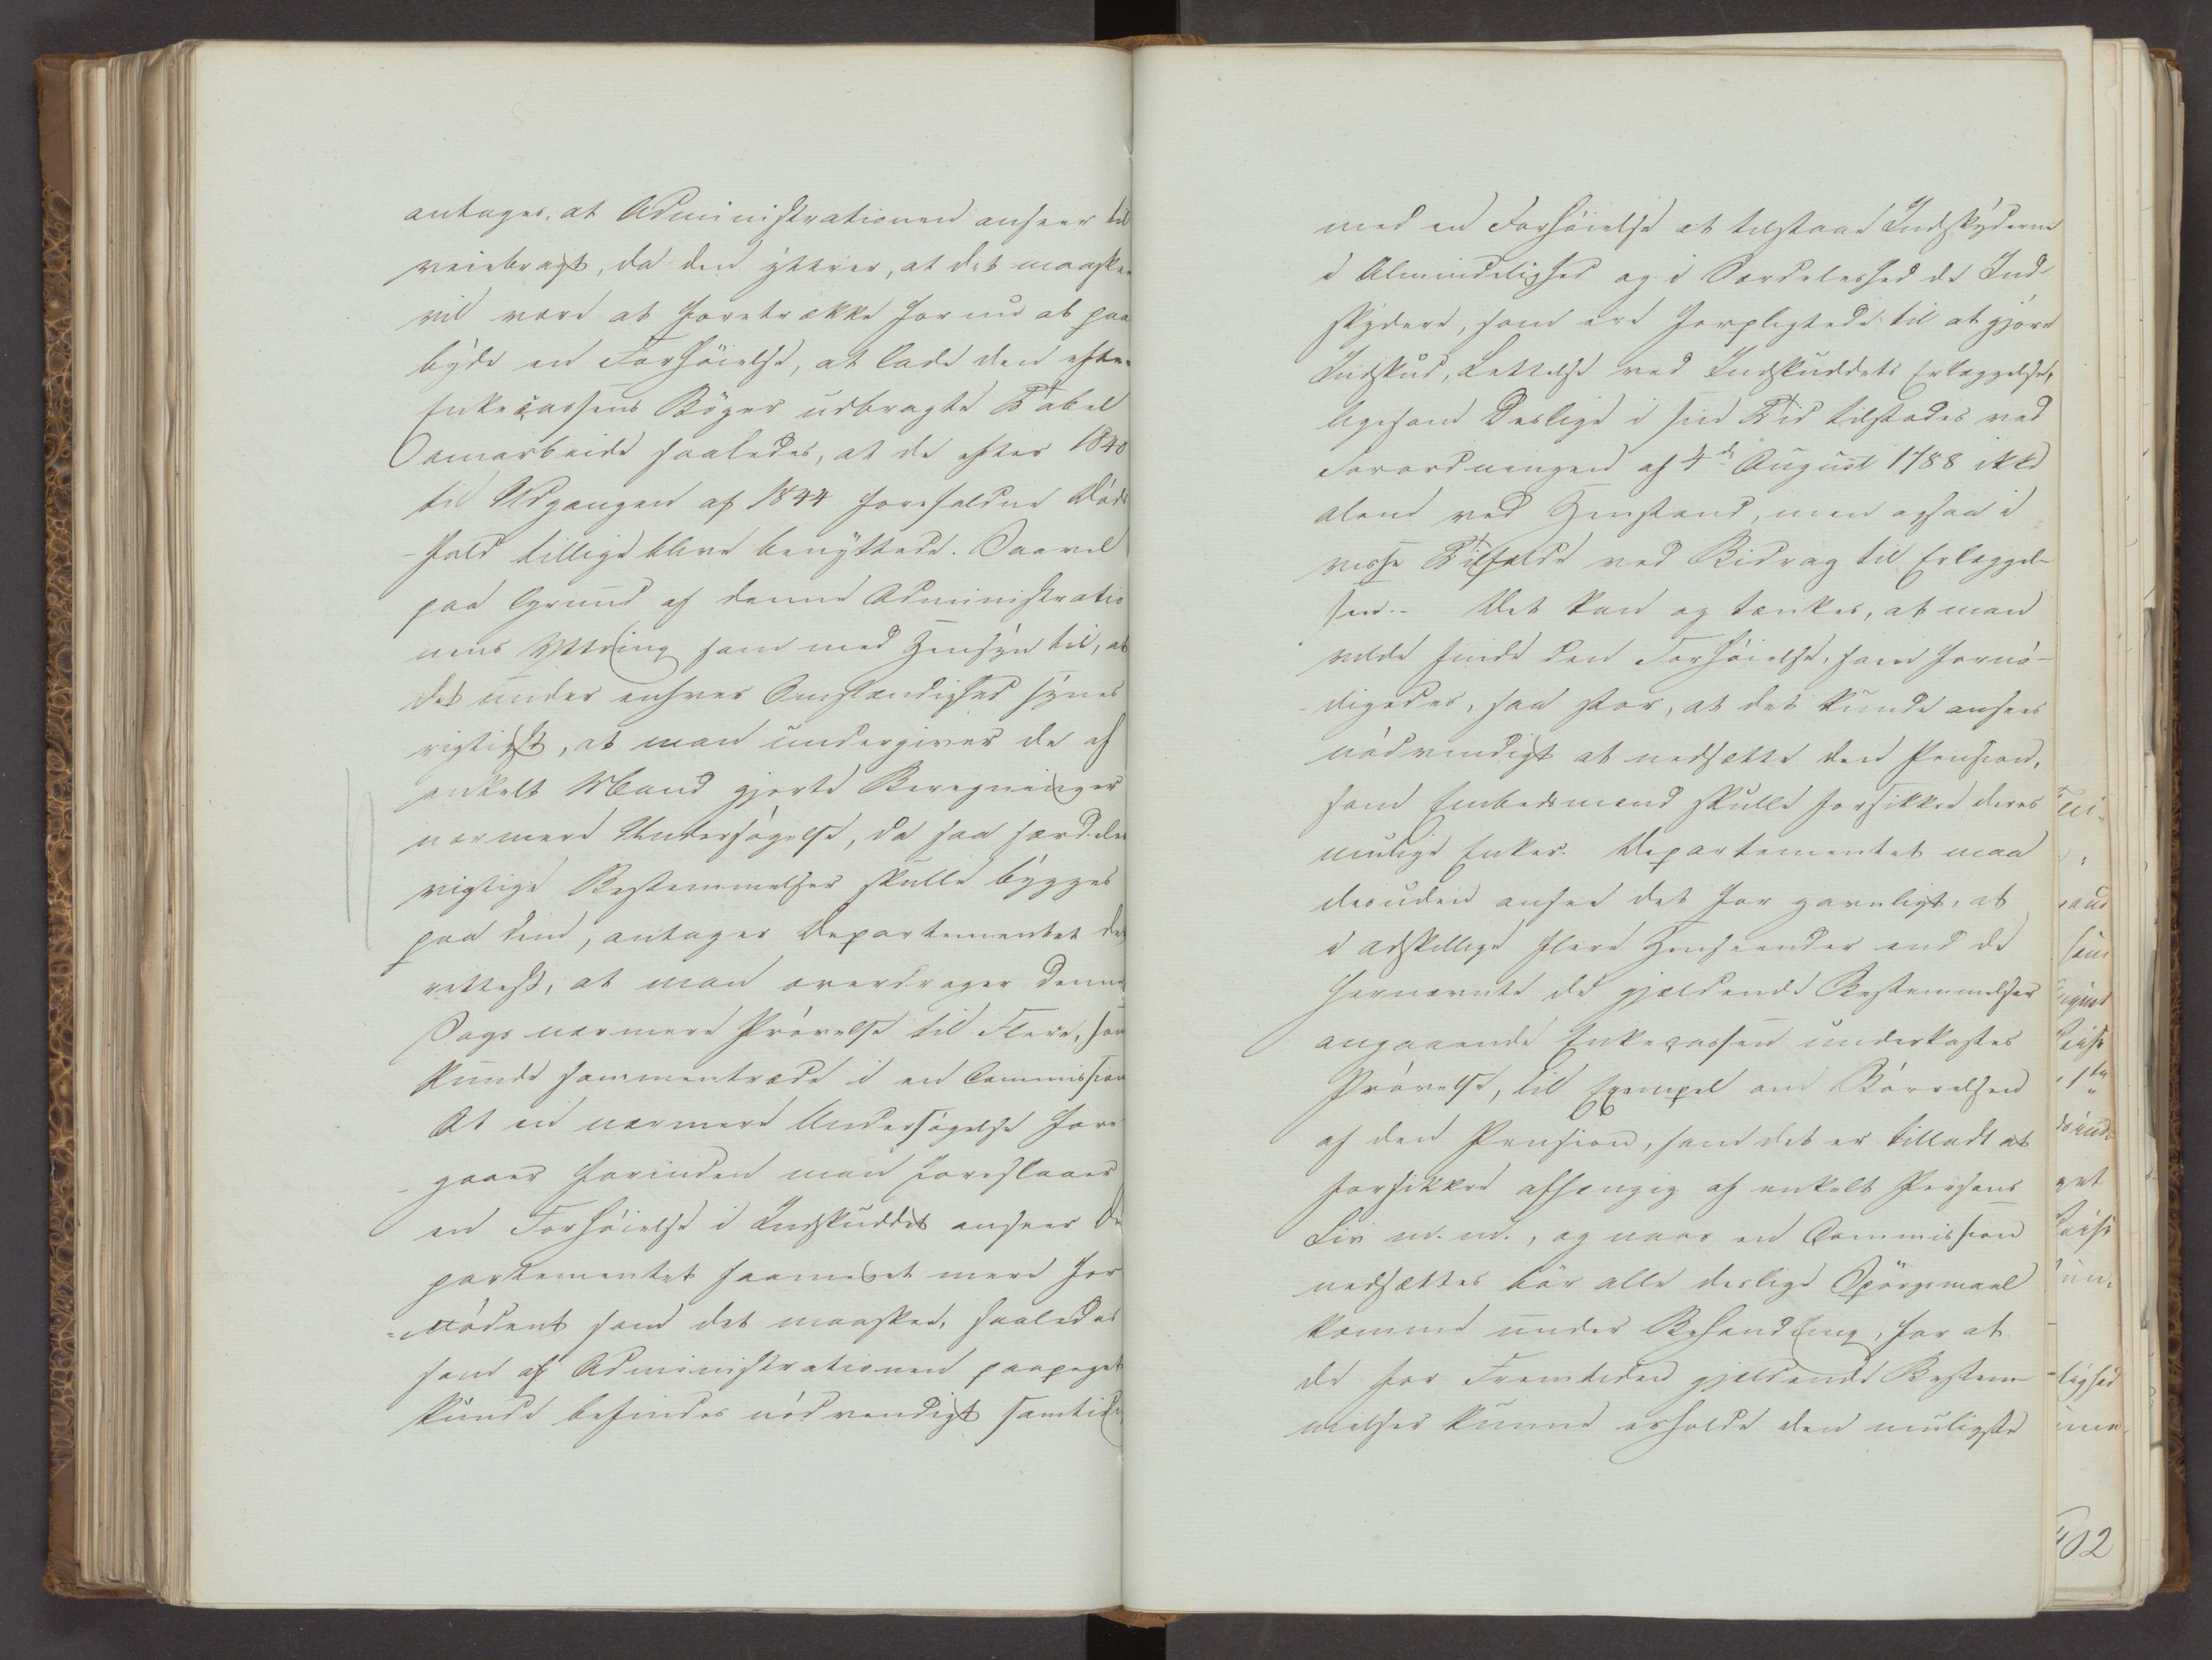 antages, at Administrationen anseer til
veiebragt, da den yttrer, at det maaskee
vil være at foretrække for nu at paa
byde en Forhöielse, at lade den efter
Enkecassens Böger udbragte Tabel
omarbeide saaledes, at de efter 1840
til Udgangen af 1844 forefaldne Döds
-fald tillige blive benyttede. Saavel
paa Grund af denne Administratio
nens Yttring som med Hensyn til, at
det under enhver Omstændighed synes
rigtigst, at man undergiver de af
enkelt Mand gjorte Beregninger
nærmere Undersögelse, da saa særdeles
vigtige Bestemmelser skulle bygges
paa dem, antager Departementet det
rettest, at man overdrager denne
Sags nærmere Prövelse til Flere, som
kunde sammentræde i en Commission
At en nærmere Undersögelse fore
-gaaer forinden man foreslaaer
en Forhöielse i Indskuddet anseer De
partementet saameget mere for
-nödent som det maaskee, saaledes
som af Administrationen paapeget
kunde befindes nödvendigt samtidig
med en Forhöielse at tilstaae Indskyderne
i Almindelighed og i Særdeleshed de Ind-
skydere, som ere forpligtede til at gjöre
Indskud, Lettelse ved Indskuddets Erlæggelse,
ligesom Deslige i sin Tid tilstodes ved
Forordningen af 4de August 1788 ikke
alene ved Henstand, men ogsaa i
visse Tilfælde ved Bidrag til Erlæggel-
sen.- Det kan og tænkes, at man
vilde finde den Forhöielse, som fornö-
-digedes, saa stor, at det kunde ansees
nödvendigt at nedsætte den Pension,
som Embedsmænd skulle forsikkre deres
mulige Enker. Departementet maa
desuden ansee det for gavnligt, at
i adskillige flere Henseender end de
fornævnte de gjældende Bestemmelser
angaaende Enkecassen underkastes
Prövelse, til Exempel om Störrelsen
af den Pension, som det er tilladt at
forsikkre afhængig af enkelt Persons
Liv m. m., og naar en Commission
nedsættes bör alle deslige Spörgsmaal
komme under Behandling, for at
de for Fremtiden gjældende Bestem-
melser kunne erholde den muligste